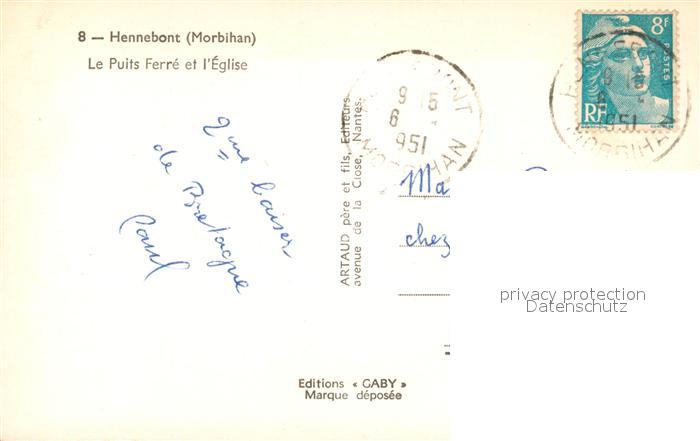 8 — Hennebont (Morbihan)
Le Puits Ferré et l'Église
2me baiser
de Bretagne
Paul
ARTAUD père et fils, Editeurs
avenue de la Close, Nantes.
9 15
6
951
MORBIHAN
8F
POSTES
RF
9 15
6
951
MORBIHAN
Ma
chez
privacy protection
Datenschutz
Editions « GABY »
Marque déposée